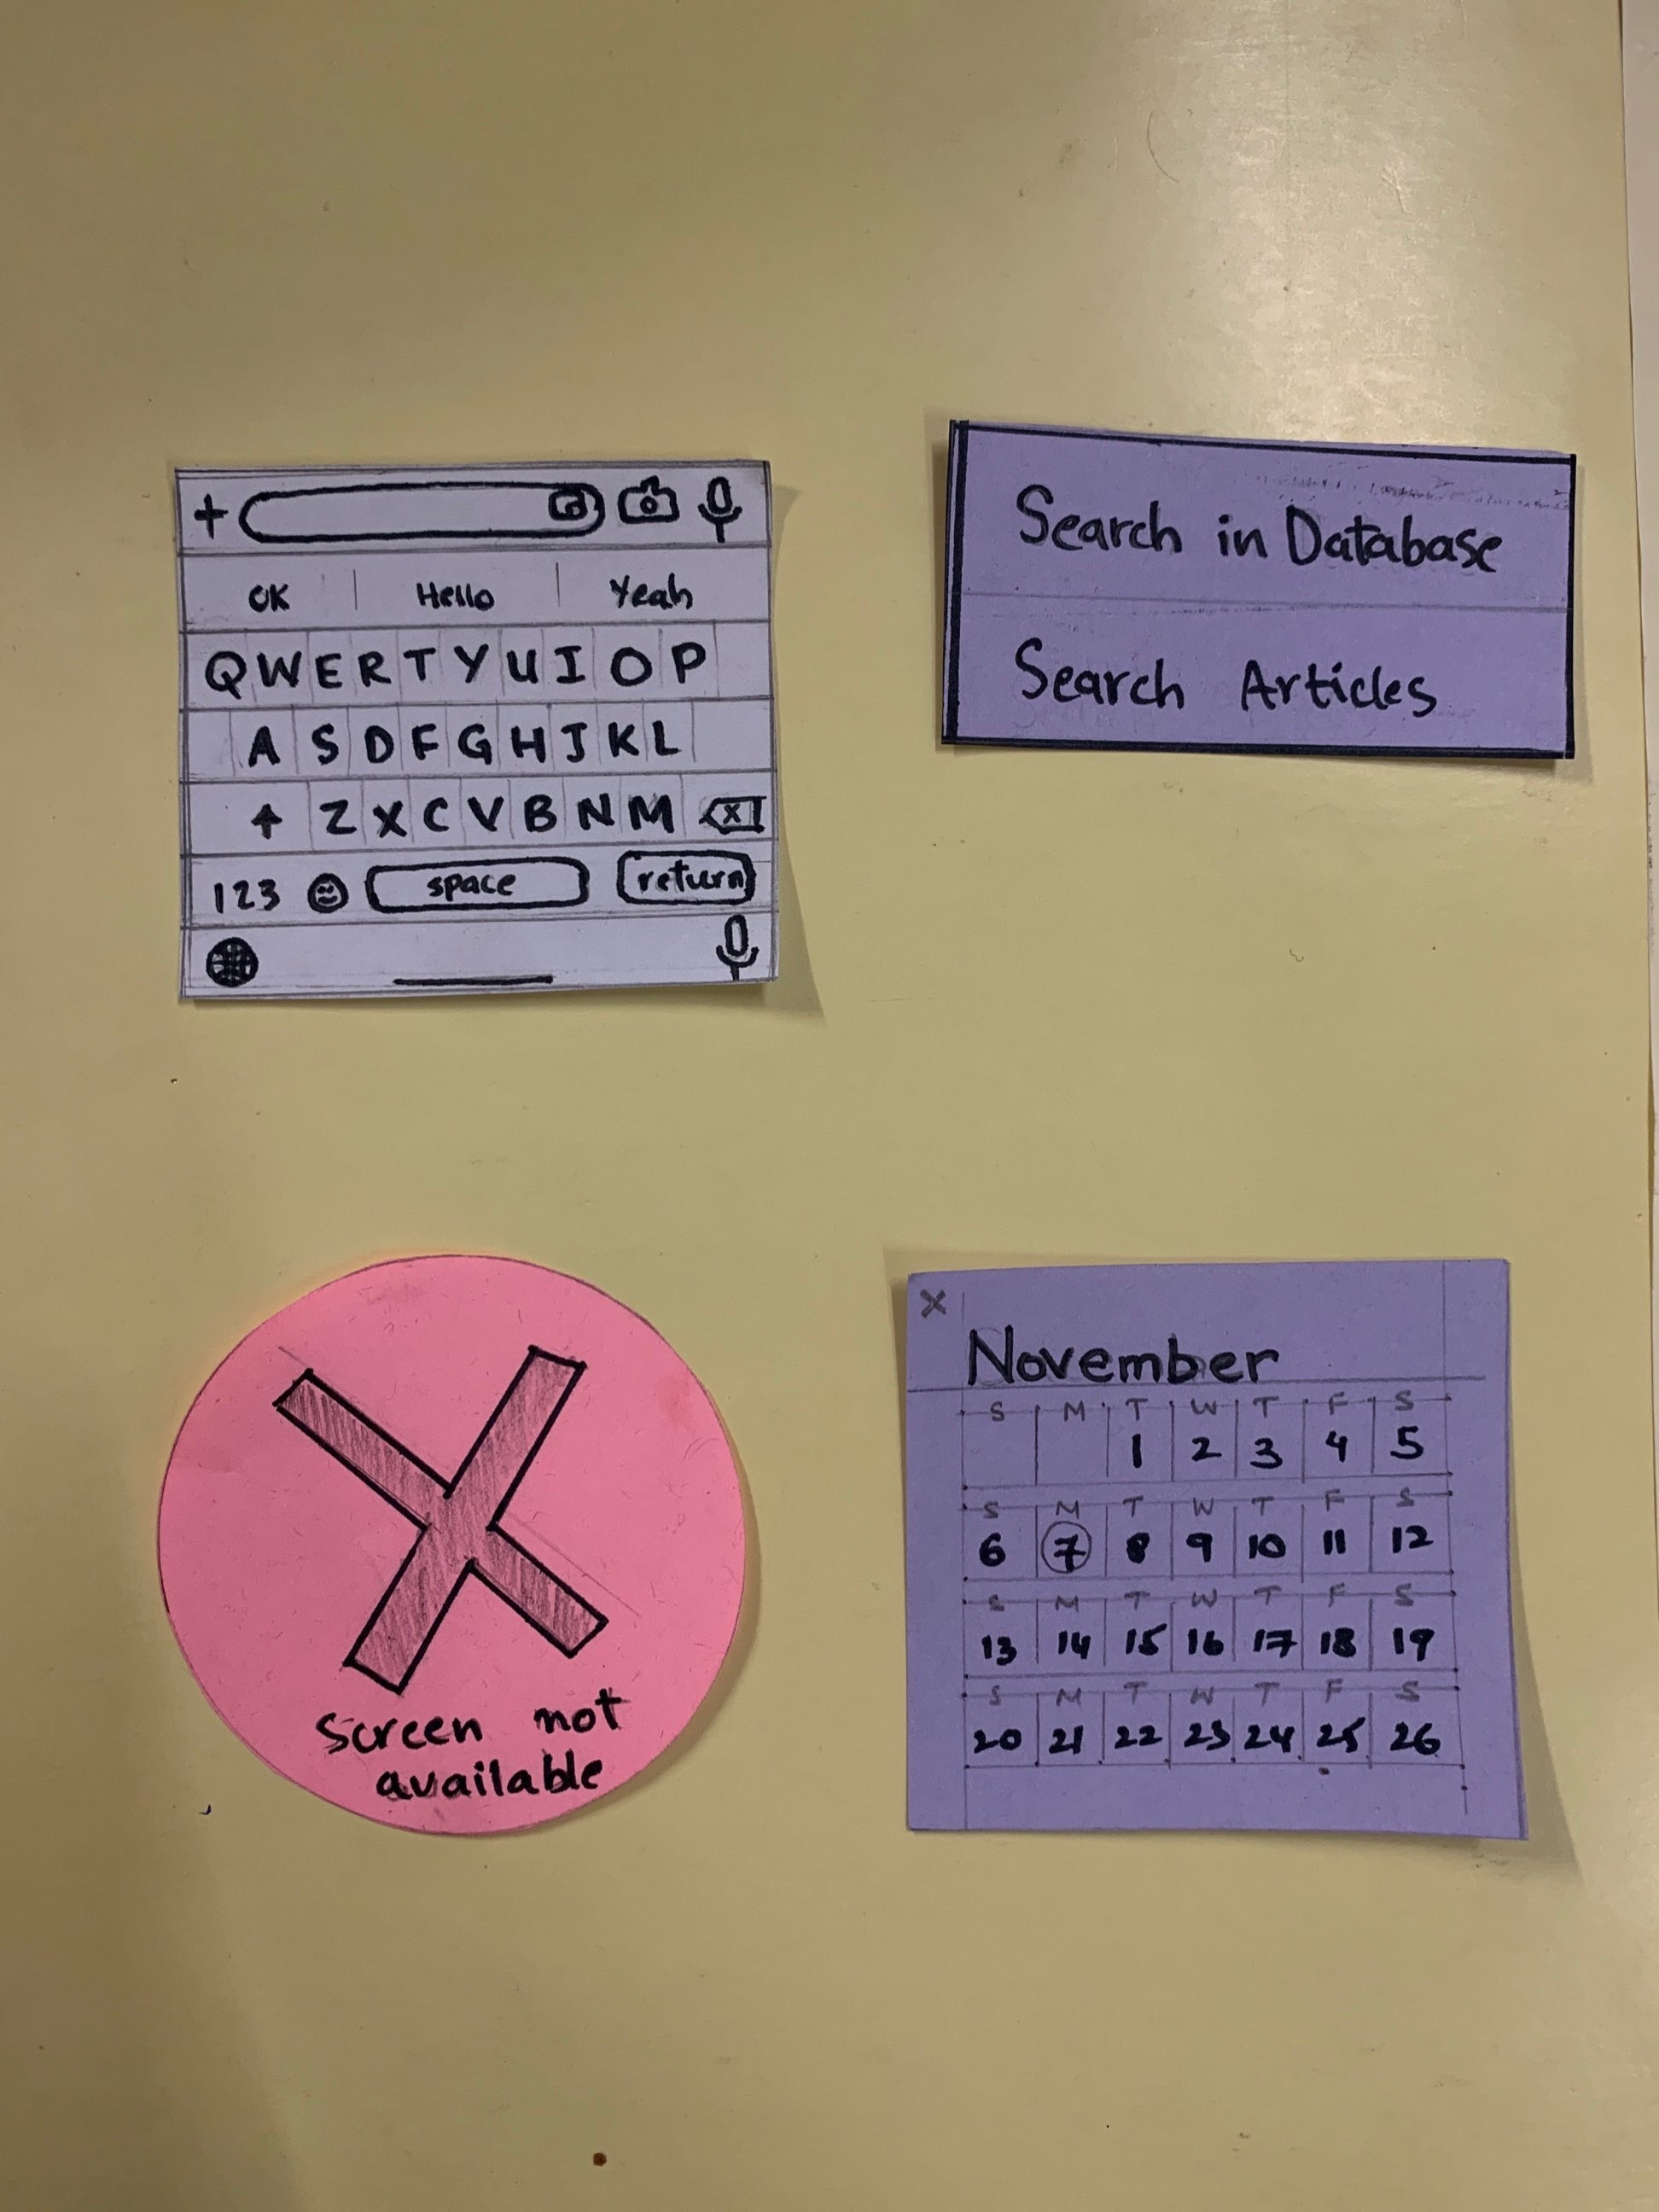 +
OK Hello Yeah
Q W E R T Y U I O P
A S D F G H J K L
Z X C V B N M X
123 space return
Search in Database
Search Articles
Screen not
available
X
November
S M T W T F S
1 2 3 4 5
S M T W T F S
6 7 8 9 10 11 12
S M T W T F S
13 14 15 16 17 18 19
S M T W T F S
20 21 22 23 24 25 26